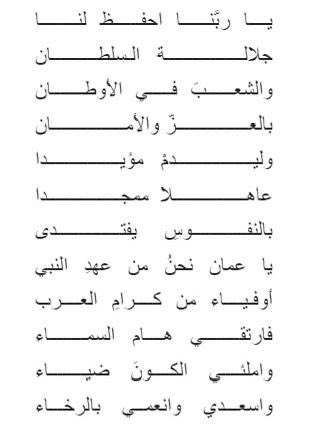 يا ربَّنا احفظ لنا
جلالة السلطان
والشعبَ في الأوطان
بالعزّ والأمان
وليدمْ مؤيدا
عاهلا ممجدا
بالنفوسِ يفتدى
يا عمان نحنُ من عهدِ النبي
أوفياء من كرامِ العرب
فارتقي هام السماء
واملئي الكونَ ضياء
واسعدي وانعمي بالرخاء